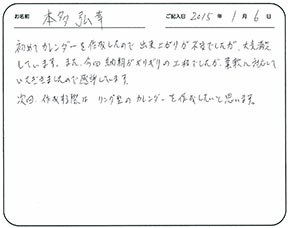 お名前 本多 弘幸 ご記入日 2015年 1月 6日
初めてカレンダーを作成したので 出来上がりが不安でしたが、大変満足
しています。また、今回 納期がギリギリの工程でしたが、柔軟に対応して
いただきましたので感謝しています。
次回 作成時には リング型の カレンダーを作成したいと思います。